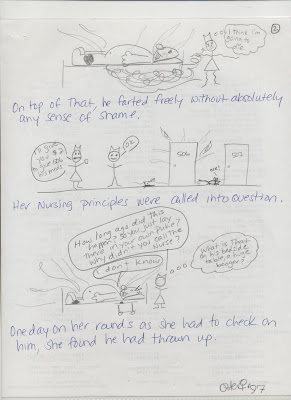 2
I think I'm
going to
die
On top of That, he farted freely without absolutely
any sense of shame.
I'll give
you $2
OK
506
507
Her Nursing principles were called into Question.
How long ago did this
happen? So you just lay
there in your own Puke?
Why didn't you call The
Nurse?
I don't know
What is That
on his bedside
table, a huge
booger?
One day on her rounds as she had to check on
him, she found he had thrown up.